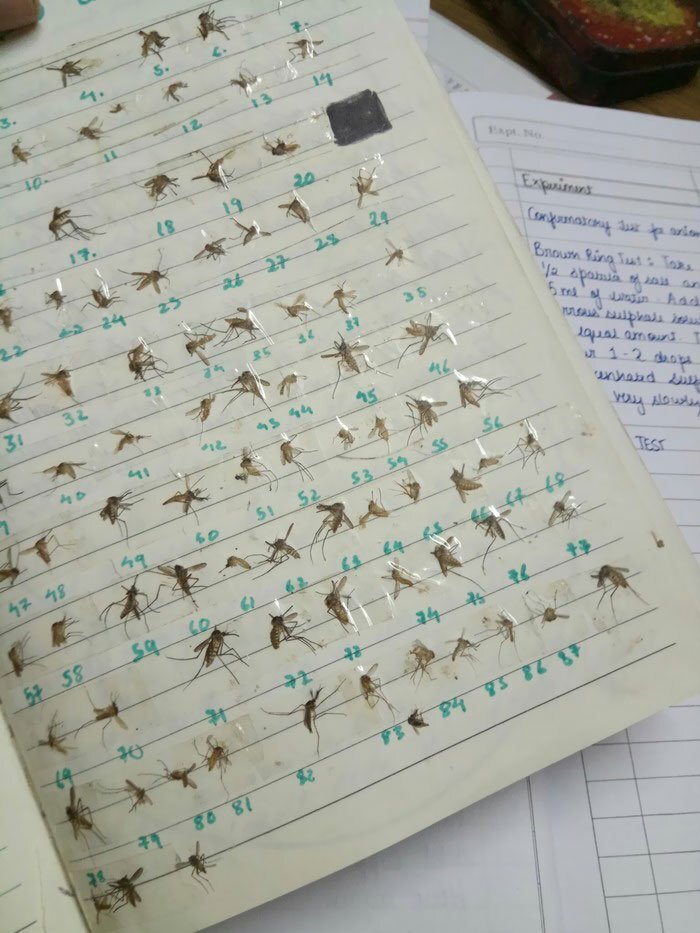 3. 4. 5. 6. 7.
10. 11 12 13 14
17. 18 19 20
22 23 24 25 26 27 28 29
31 32 33 34 35 36 37 38
40 41 42 43 44 45 46
47 48 49 50 51 52 53 54 55 56
57 58 59 60 61 62 63 64 65 66 67 68
69 70 71 72 73 74 75 76 77
78 79 80 81 82 83 84 85 86 87
Expt. No.
Experiment
Confirmatory Test for anion
Brown Ring Test : Take
1/2 spatula of salt an
5 ml of water. Add
rrous sulphate solu
equal amount. T
1-2 drops
very slowly
TEST